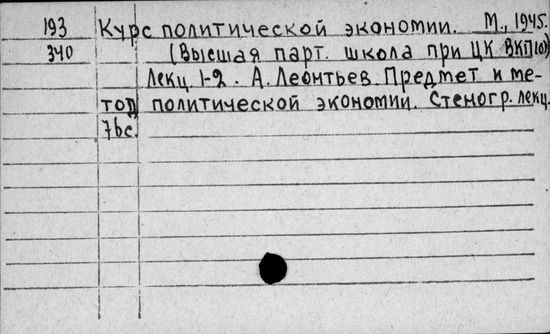 193 Курс политической экономии. М., 1945.
340 (Высшая парт. школа при ЦК ВКП(б))
Лекц. 1-2. А. Леонтьев. Предмет и ме-
тод политической экономии. Стеногр. лекц.
76с.